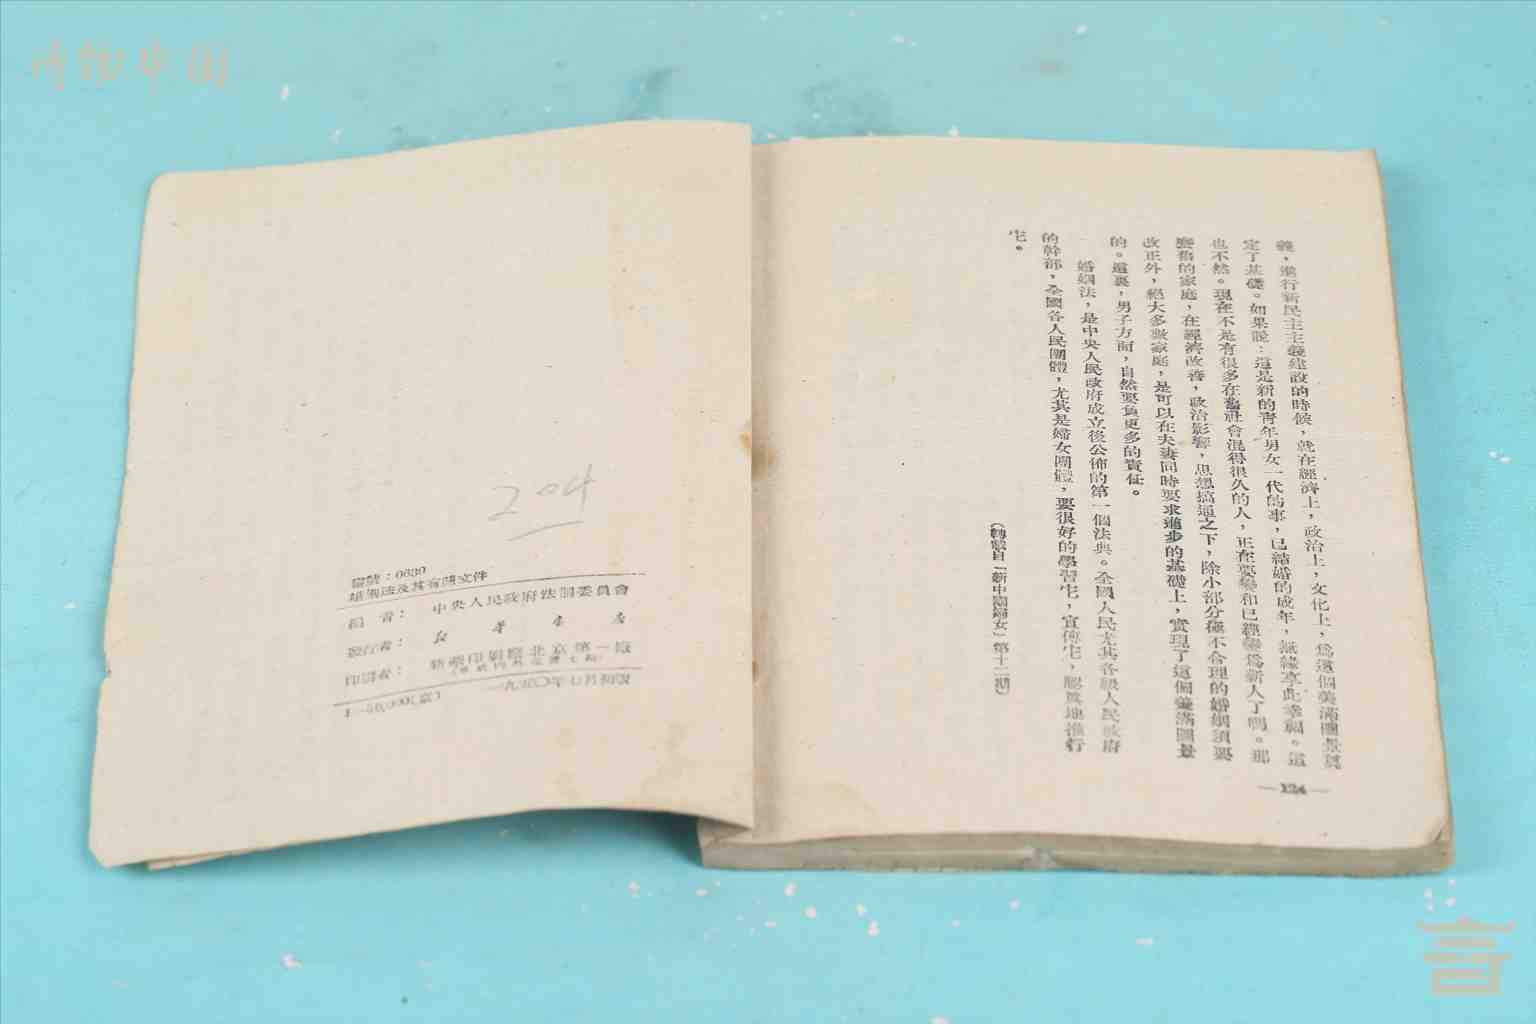 義，進行新民主主義建設的時候，就在經濟上，政治上，文化上，爲這個美滿圖景奠
定了基礎。如果說：這是新的靑年男女一代的事，已結婚的成年，無緣享此幸福。這
也不然。現在不是有很多在舊社會混得很久的人，正在要變和已經變爲新人了嗎。那
麼舊的家庭，在經濟改善，政治影響，思想搞通之下，除小部分極不合理的婚姻須要
改正外，絕大多數家庭，是可以在夫妻同時要求進步的基礎上，實現了這個美滿圖景
的。這裏，男子方面，自然要負更多的責任。
婚姻法，是中央人民政府成立後公佈的第一個法典。全國人民尤其各級人民政府
的幹部，全國各人民團體，尤其是婦女團體，要很好的學習它，宣傳它，認眞地推行
它。
（轉載自「新中國婦女」第十二期）
— 124 —
204
編號：0639
婚姻法及其有關文件
編者：中央人民政府法制委員會
發行者：新華書店
印刷者：新華印刷廠北京第一廠
一九五〇年七月初版
博物中国